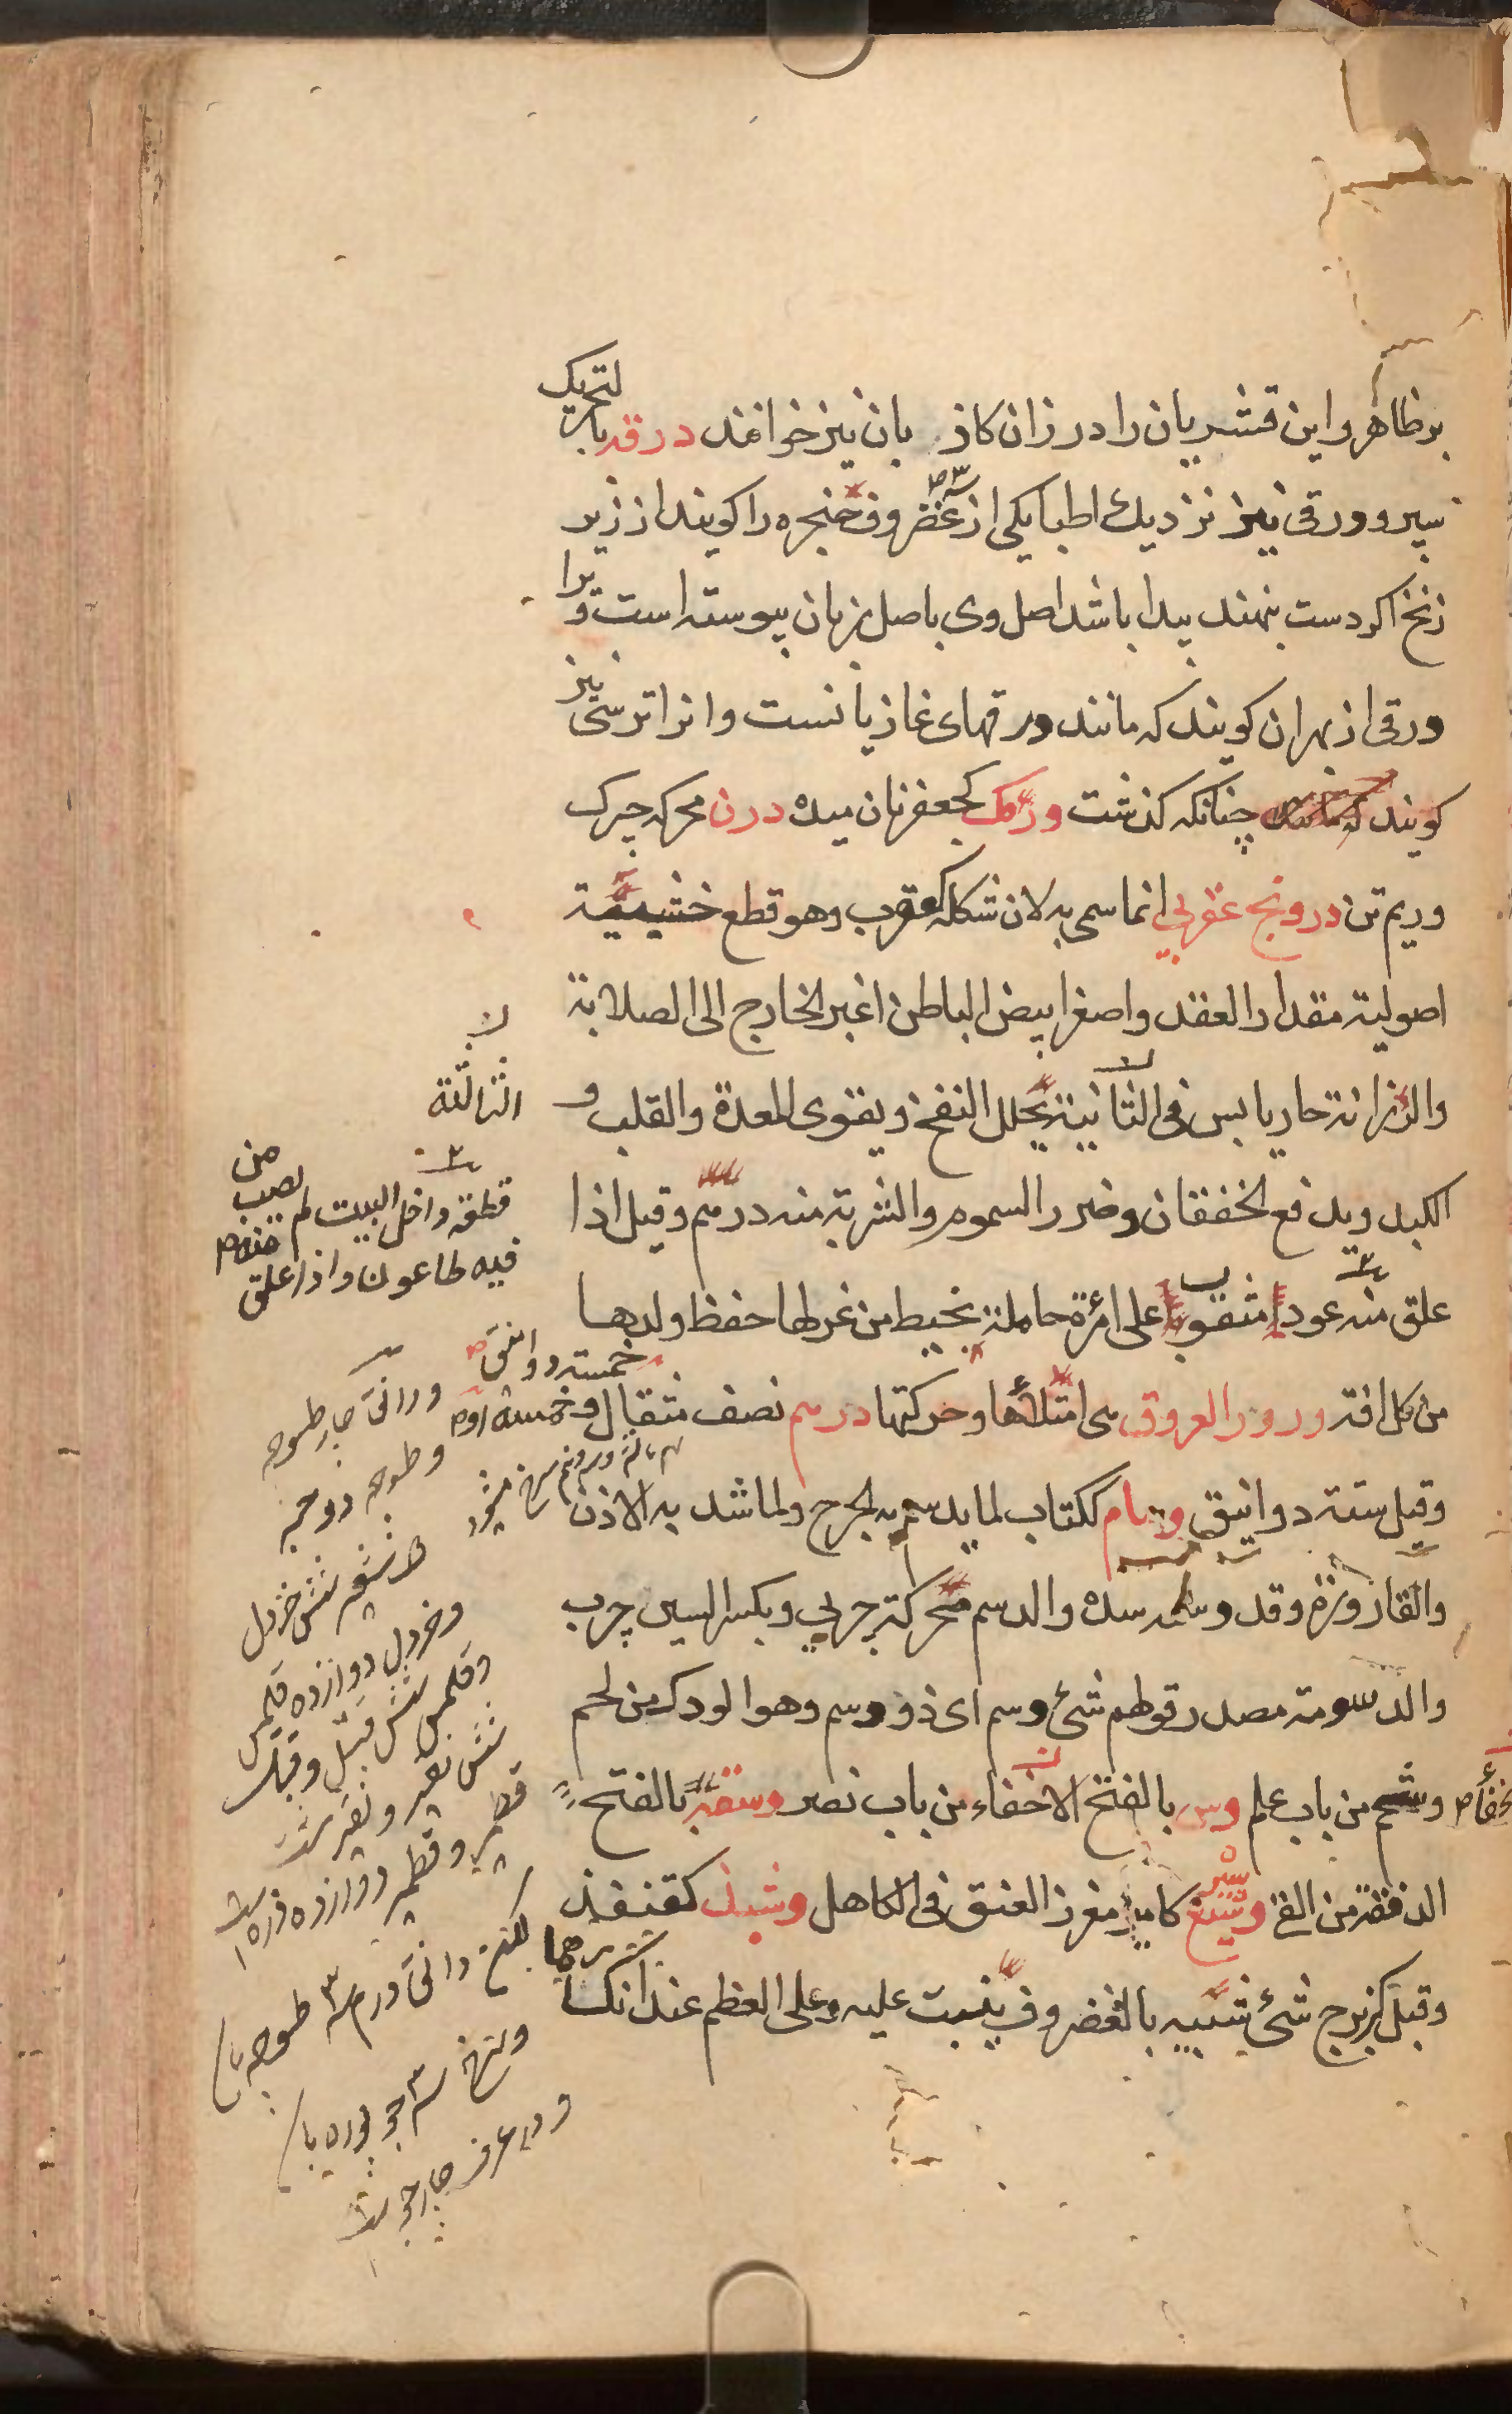 بر ظاهر و این قشریان را درزان کاذبان نیز خوانند درقه بالتحریک
سپر و ورقی نیز نزدیک اطبا یکی از سه غضروف حنجره را کویند از زیر
زنخ اکر دست نهند پیدا باشد اصل وی باصل زبان پیوسته است و برا
ورقی از بهر ان کویند که مانند ورقهای غازیانست و انرا ترسی نیز
کویند چنانکه کذشت درمک کجعفر نان میده درن محرکه چرک
و ریم تن درونج عقربی انما سمی به لان شکله کعقرب و هو قطع خشبیة
اصولیة مقدار العقد و اصغر ابیض الباطن اغبر الخارج الی الصلابة
والرزانة حار یابس فی الثانیة یحلل النفخ و یقوی المعدة والقلب و
الکبد و یدفع الخفقان و ضرر السموم والشربة منه درهم و قیل اذا
علق منه عود مثقوب علی امرأة حاملة بخیط من غزلها حفظ ولدها
من کل افة درور العروق ای امتلاها و حرکتها درهم نصف مثقال و خمسه
و قیل ستة دوانیق دسام ککتاب لما یدسم به الجرح و لما شد به الاذن
والقارورة و قد دسمه سده والدسم محرکة چربی و بکسر السین چرب
والدسومة مصدر قولهم شئ دسم ای ذو دسم و هو الودک من لحم
و شحم من باب علم دس بالفتح الاخفاء من باب نصر دستقبر بالفتح
الدفقة من القئ دسیع کامیر مغرز العنق فی الکاهل دشبذ کقنفذ
و قیل کزبرج شئ شبیه بالغضروف ینبت علیه و علی العظم عند انکسارهما
الثالثة
قطعة داخل البیت لم یصب من
فیه طاعون و اذا علق
خمسة دوانق
و دانق چهار طسوج
و طسوج دو حبه
شش خردل
و خردل دوازده فلس
و فلس شش فتیل و فتیل
شش نقیر و نقیر هشت
قطمیر و قطمیر دوازده ذره است